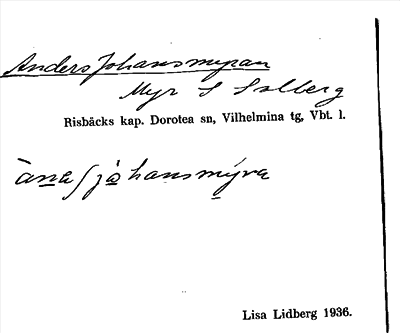 Anders Johansmyran
Myr S Solberg
Risbäcks kap. Dorotea sn, Vilhelmina tg, Vbt. l.
ànaʃjåhansmýra
Lisa Lidberg 1936.